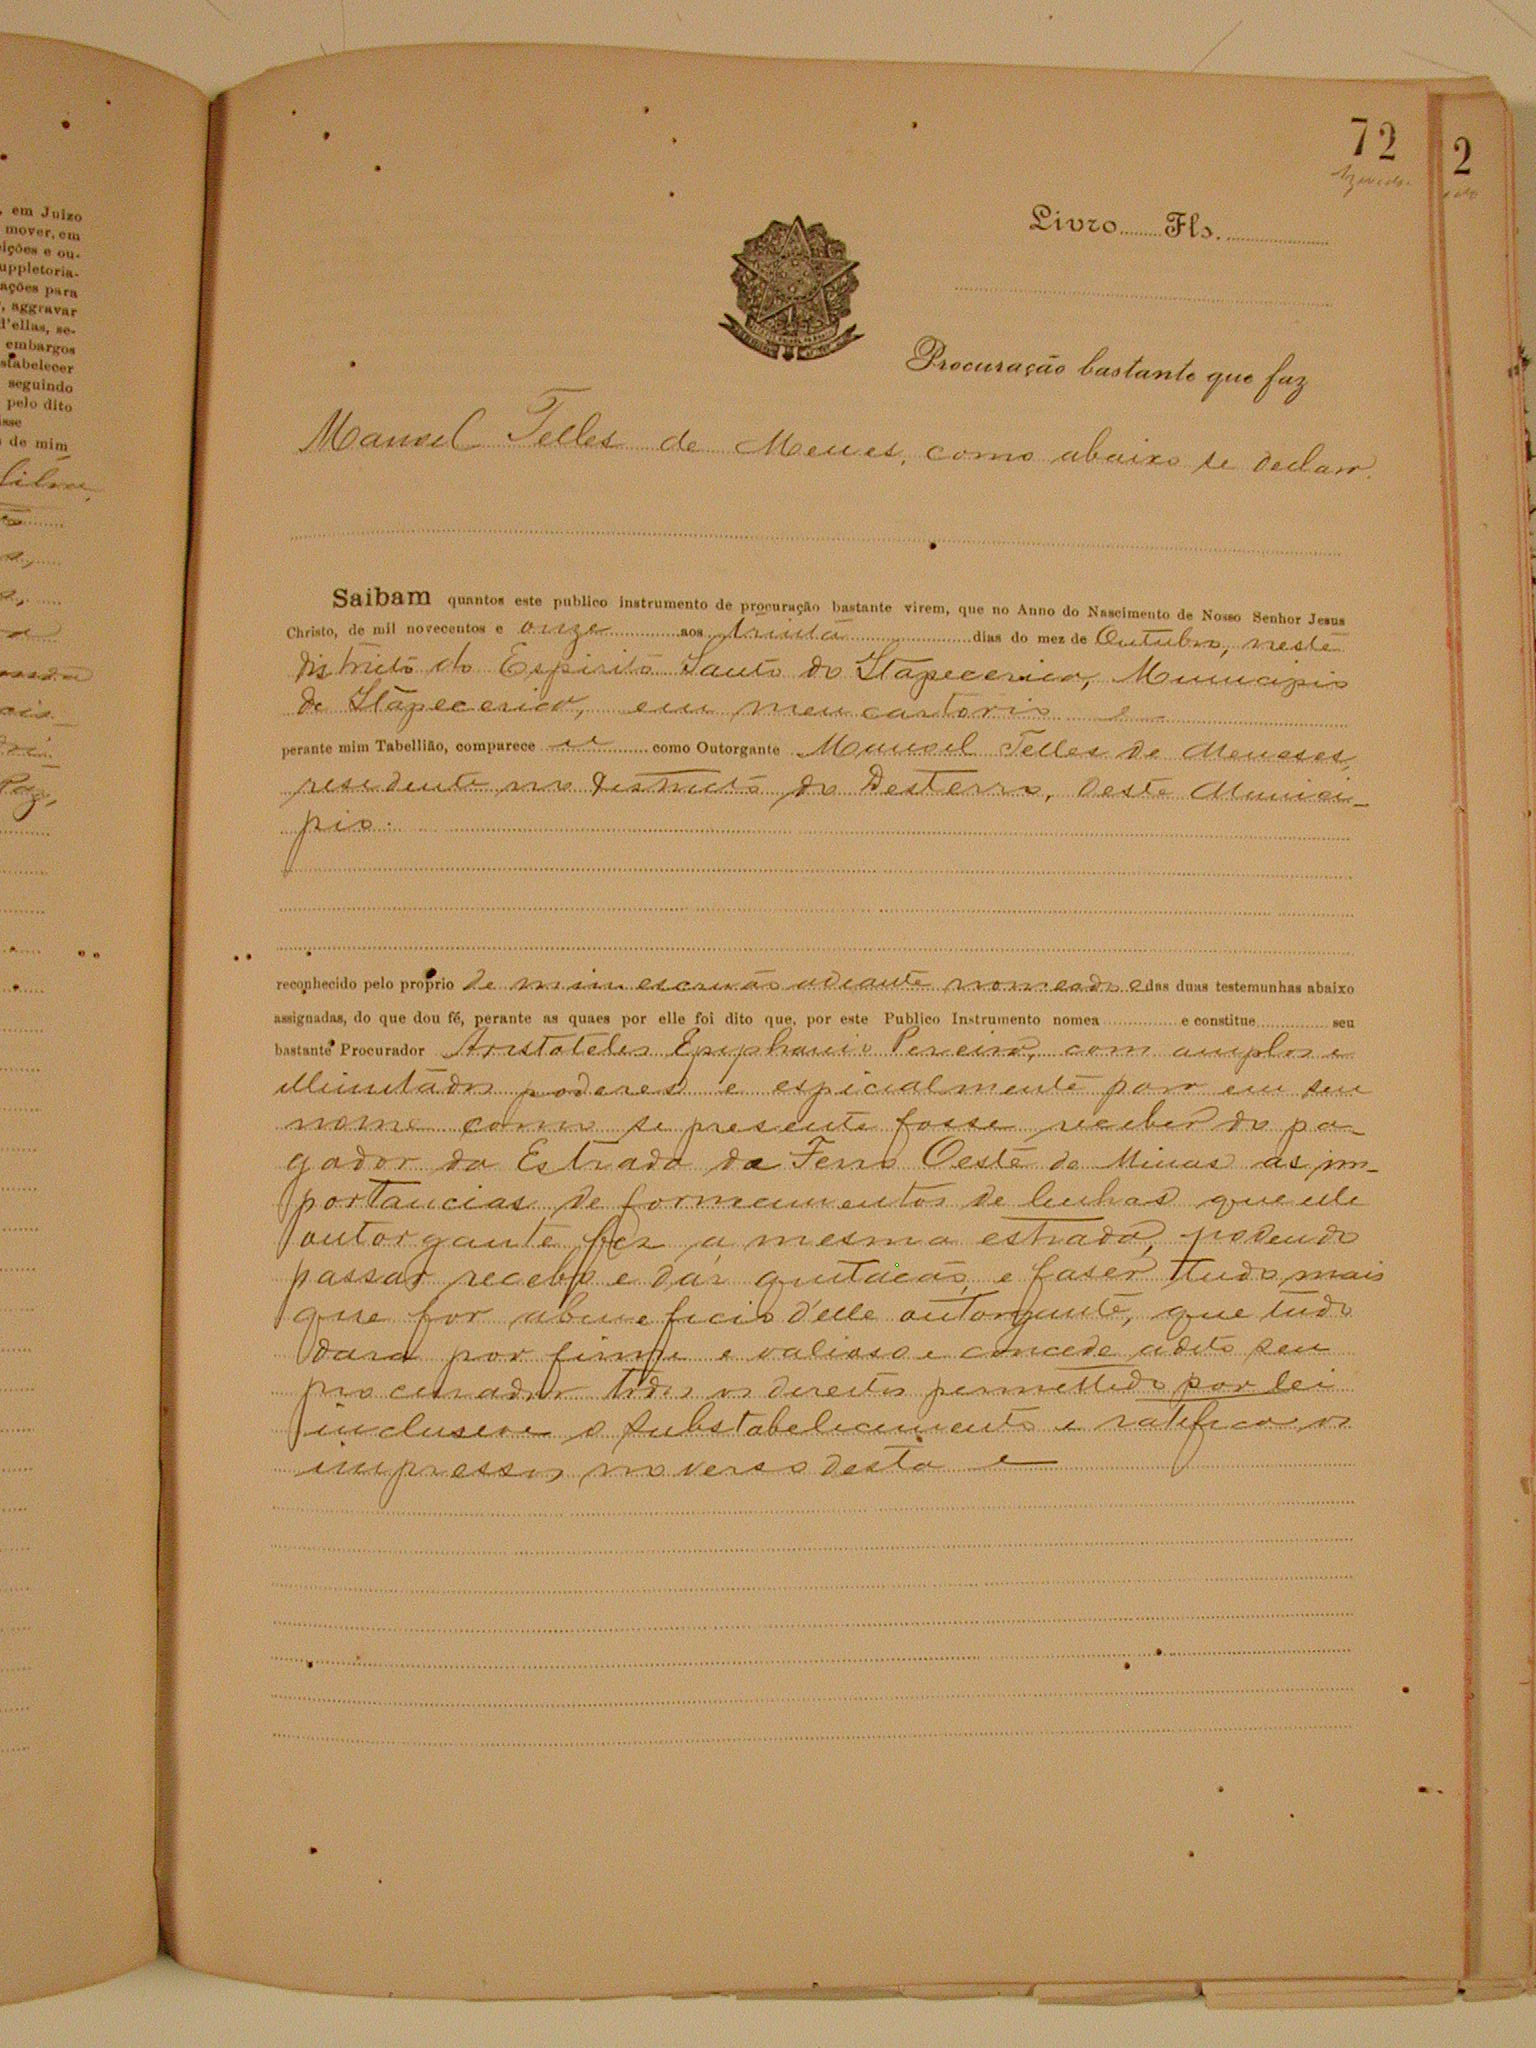 , em Juizo
mover, em
eições e ou-
uppletoria-
ações para
, aggravar
d'ellas, se-
embargos
stabelecer
seguindo
pelo dito
isse
de mim
72
2
Livro Fls.
Procuração bastante que faz
Manoel Telles de Menes, como abaixo se declar.
Saibam quantos este publico instrumento de procuração bastante virem, que no Anno do Nascimento de Nosso Senhor Jesus
Christo, de mil novecentos e onze aos trinta dias do mez de Outubro, neste
districto do Espirito Santo do Itapecerica, Municipio
de Itapecerica, em meu cartorio e
perante mim Tabellião, comparece u como Outorgante Manoel Telles de Meneses,
residente no districto do Desterro, deste Munici-
pio.
reconhecido pelo proprio de mim escrivão adeante nomeado e das duas testemunhas abaixo
assignadas, do que dou fé, perante as quaes por elle foi dito que, por este Publico Instrumento nomea e constitue seu
bastante Procurador Aristoteles Epiphanio Pereira, com amplos e
illimitados poderes e espicialmente para em seu
nome como se presente fosse receber do pa-
gador da Estrada de Ferro Oeste de Minas as im-
portancias de fornecimentos de lenhas que elle
outorgante fez a mesma estrada, podendo
passar recebo e dar quitacão, e faser tudo mais
que for a beneficio d'elle outorgante, que tudo
dara por firme e valioso e concede a dito seu
procurador todos os direitos permettido por lei
inclusive o substabelecimento e ratifica os
impressos no verso desta e